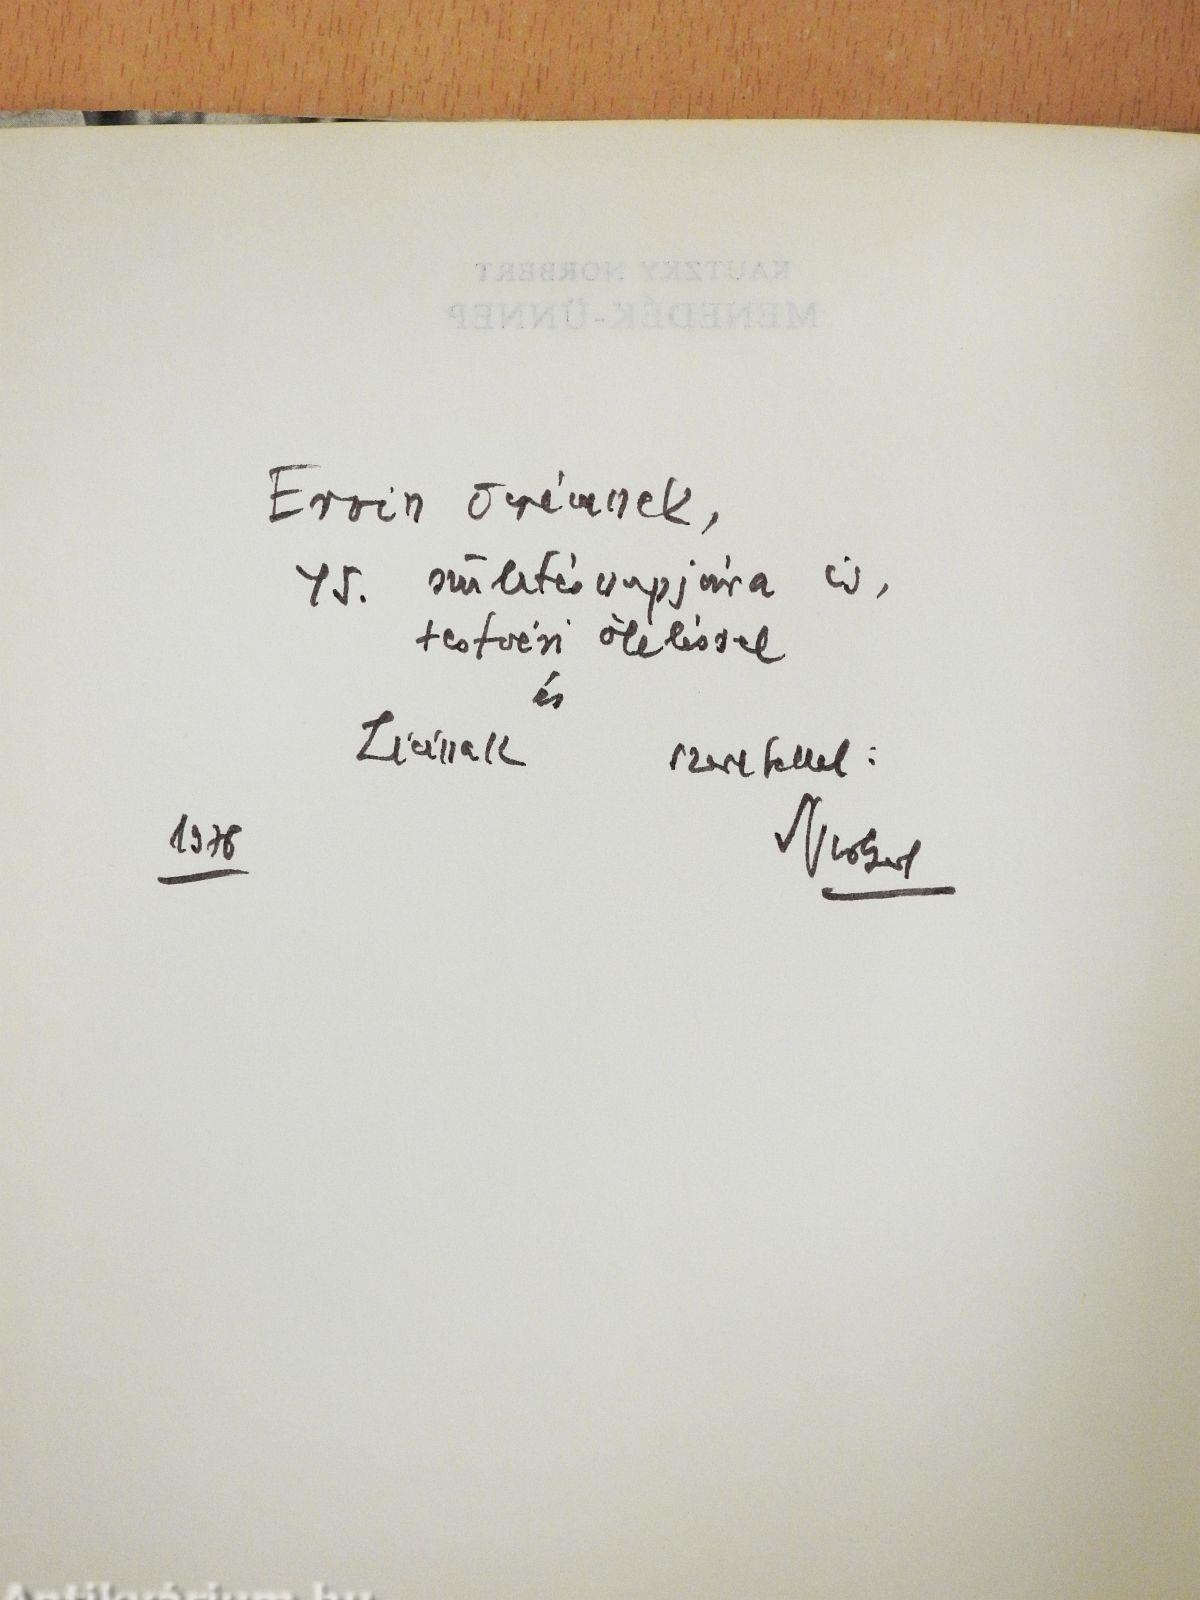 KAUTZKY NORBERT
MENEDÉK-ÜNNEP
Ervin öcsémnek,
45. születésnapjára is,
testvéri öleléssel
és
Licinak szeretettel:
1976
Norbert
Antikvárium.hu